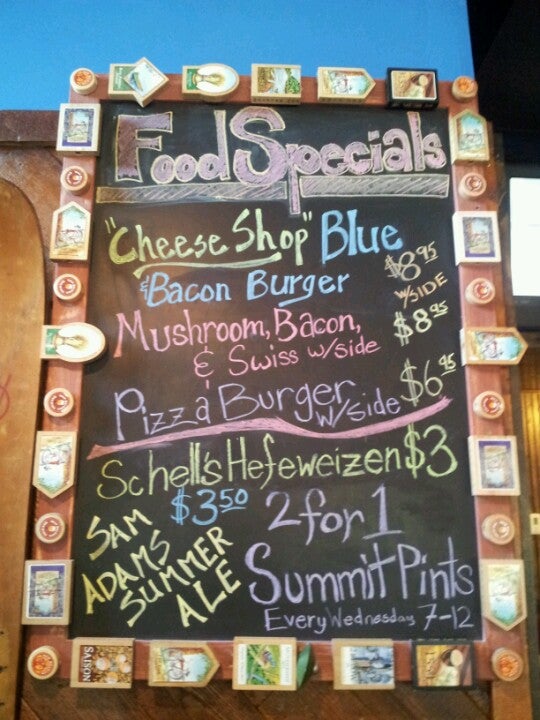 Food Specials
"Cheese Shop" Blue
& Bacon Burger $8.95
w/SIDE
Mushroom, Bacon, $8.95
& Swiss w/side
Pizza Burger $6.95
w/side
Schell's Hefeweizen $3
$3.50 2 for 1
SAM
ADAMS
SUMMER
ALE
Summit Pints
Every Wednesday 7-12
SAISON